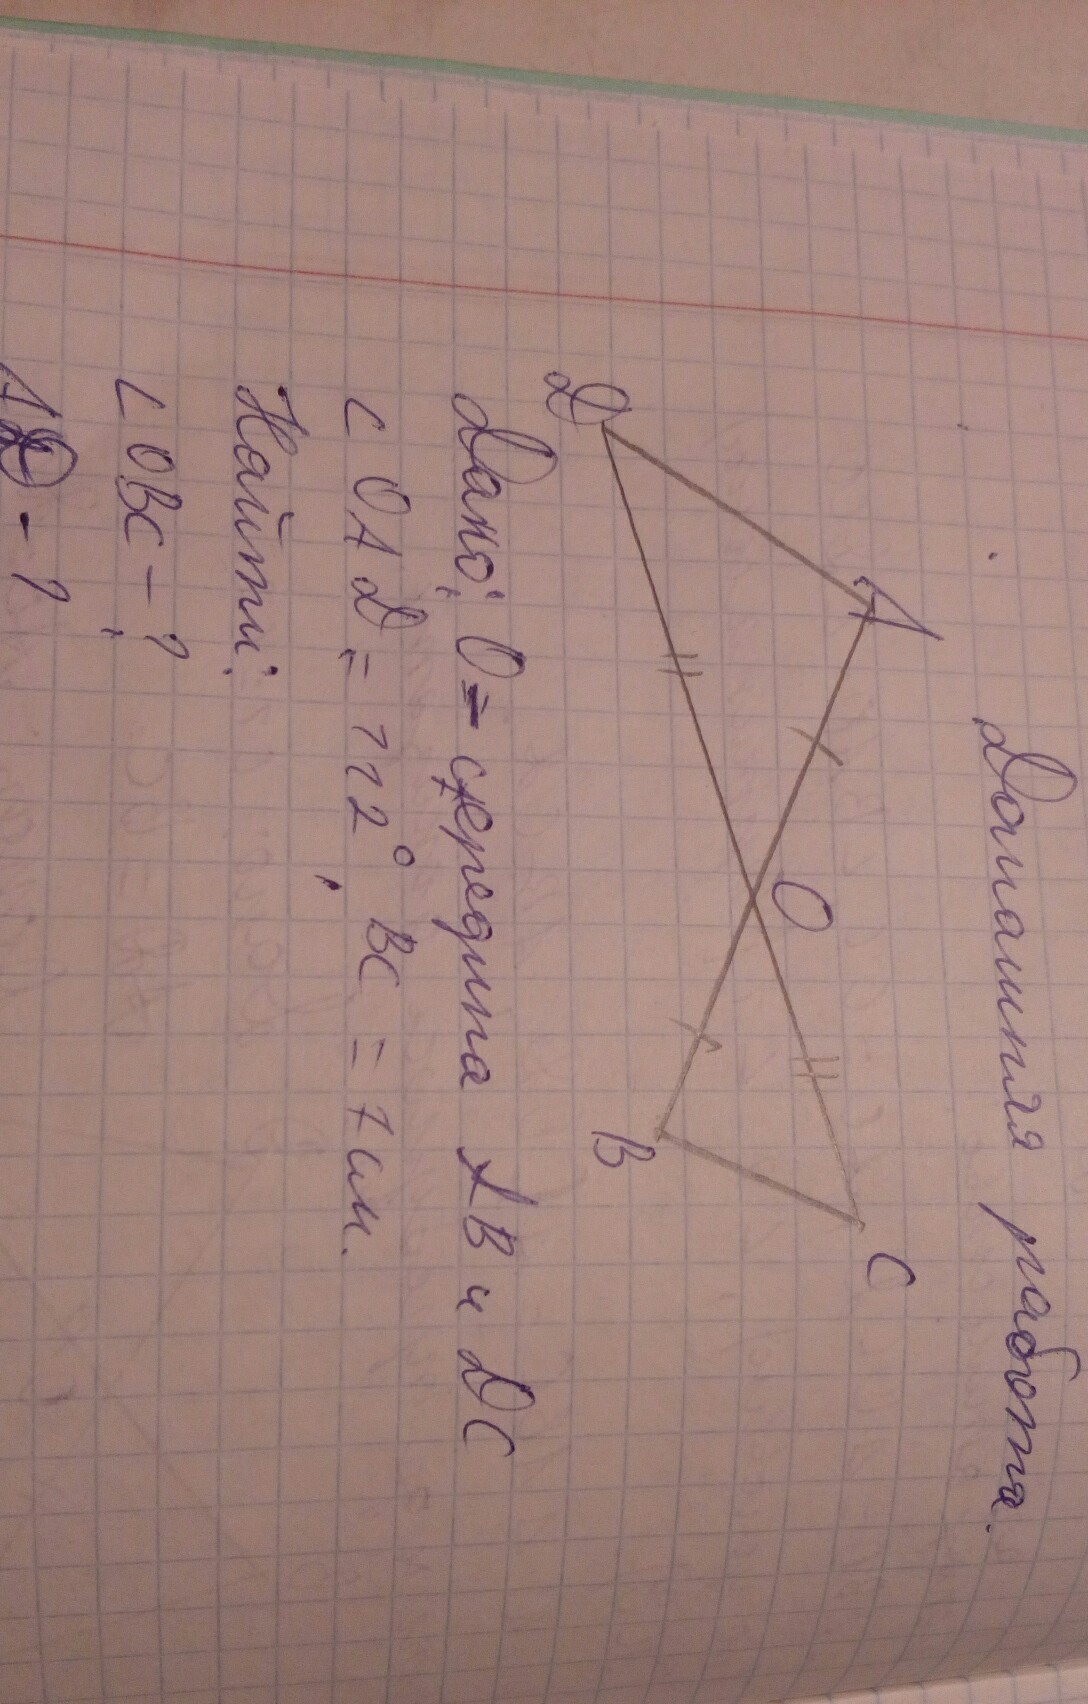 Домашняя работа.
A
O
C
D
B
Дано: O - середина AB и DC
∠ OAD = 112°, BC = 7 см.
Найти:
∠ OBC - ?,
AD - ?